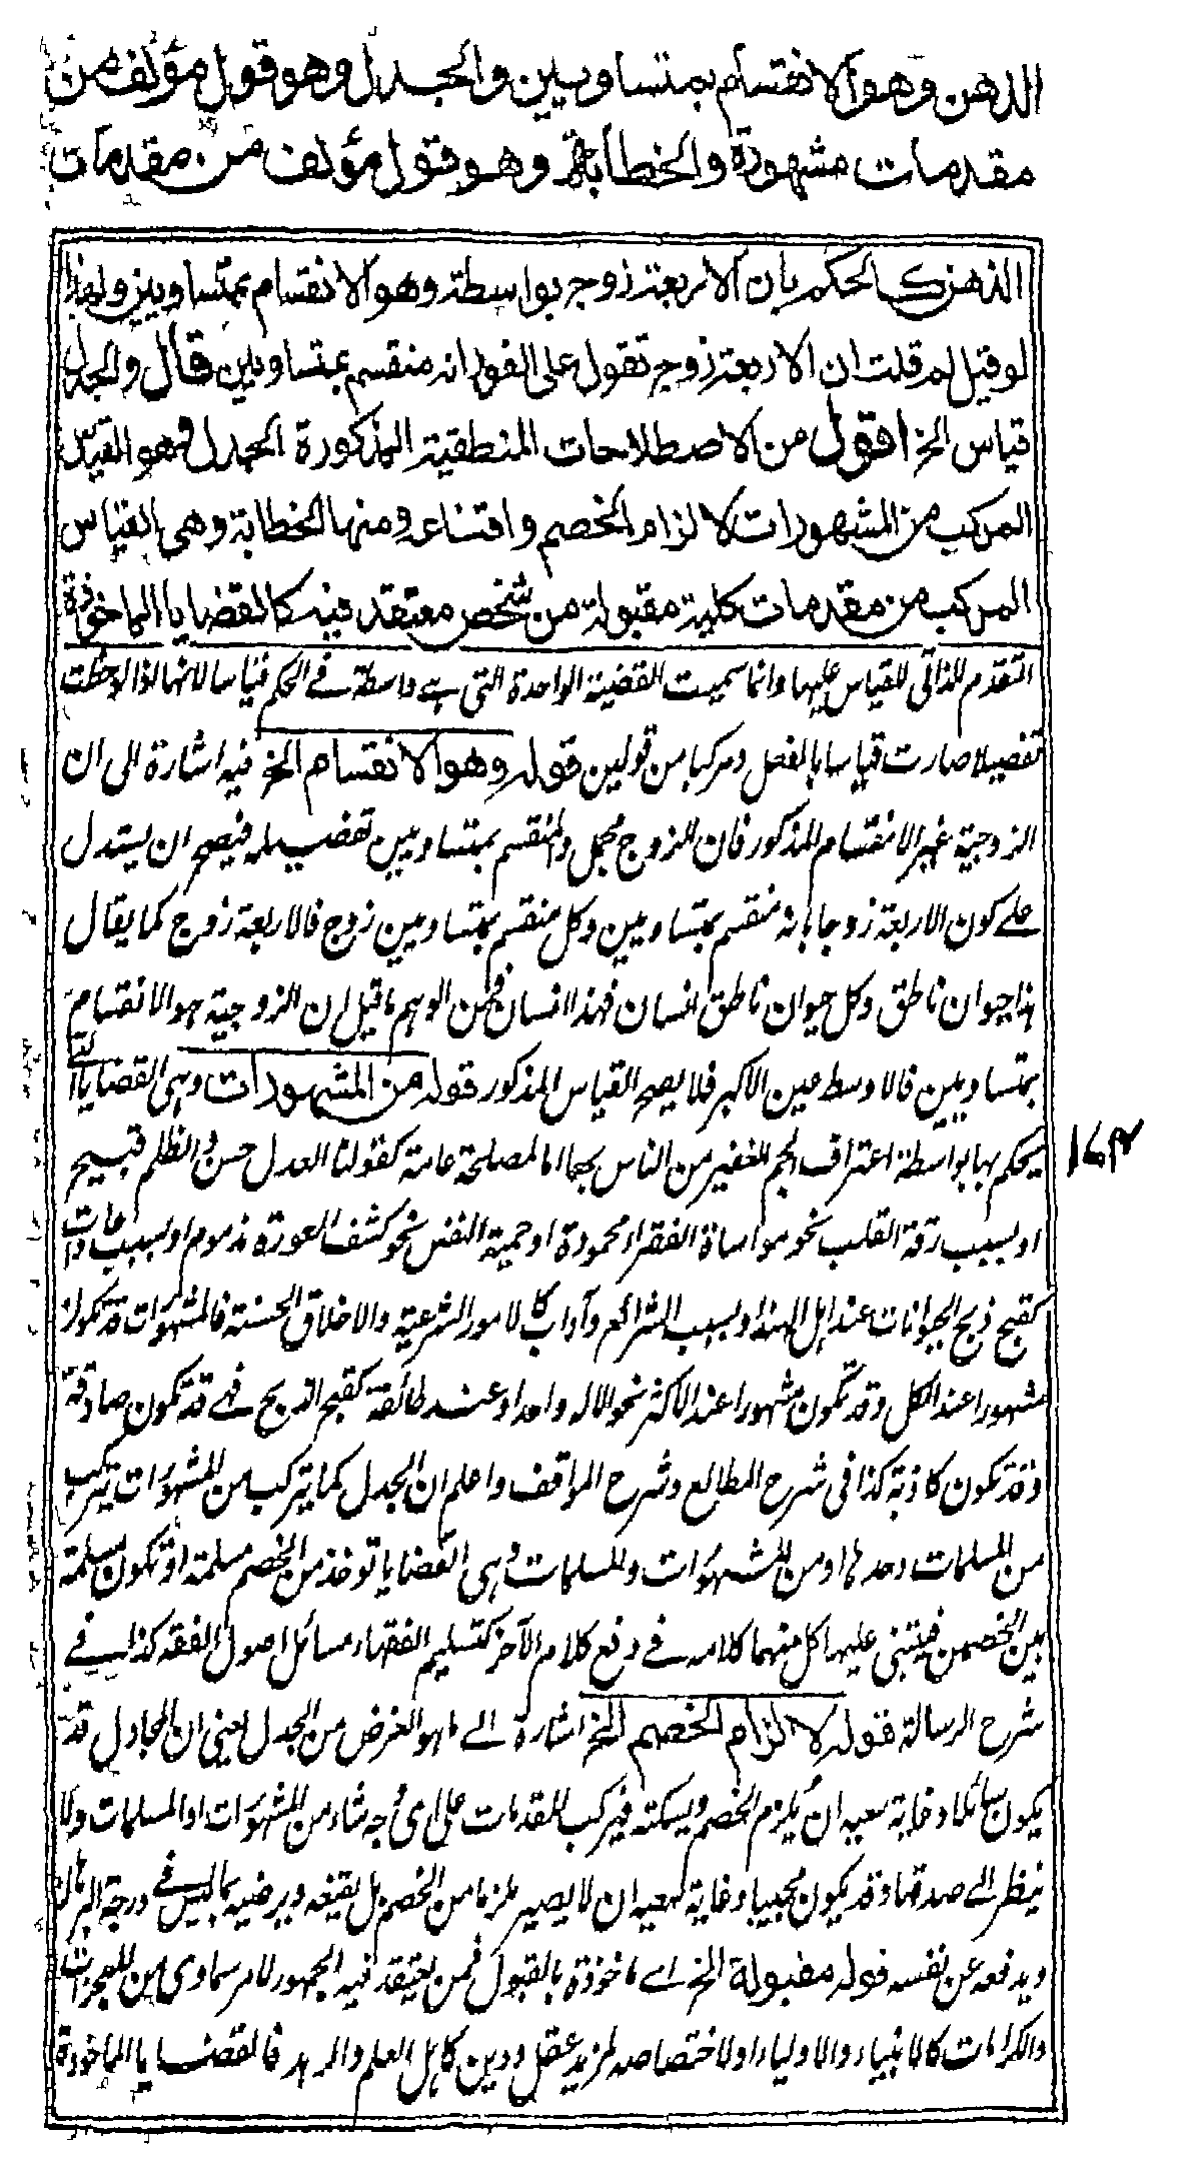 الذهن وهو الانقسام بمتساويين والجدل وهو قول مؤلف من
مقدمات مشهورة والخطابة وهو قول مؤلف من مقدمات
الذهن كالحكم بان الاربعة زوج بواسطة وهو الانقسام بمتساويين ولهذا
لو قيل لم قلت ان الاربعة زوج تقول على الفور انه منقسم بمتساويين قال والجدل
قياس الخ اقول من الاصطلاحات المنطقية المذكورة الجدل فهو القياس
المركب من المشهورات لالزام الخصم واقناعه ومنها الخطابة وهى القياس
المركب من مقدمات كلية مقبولة من شخص معتقد فيه كالقضايا الماخوذة
التقدم الذاتى للقياس عليها وانما سميت القضية الواحدة التى هے واسطة فے الحكم قياسا لانها اذا لوحظت
تفصيلا صارت قياسا بالفعل ومركبا من قولين قوله وهو الانقسام الخ فيه اشارة الى ان
الزوجية غير الانقسام المذكور فان الزوج مجمل والمنقسم بمتساويين تفصيله فيصح ان يستدل
علے كون الاربعة زوجا بانه منقسم بمتساويين وكل منقسم بمتساويين زوج فالاربعة زوج كما يقال
هذا حيوان ناطق وكل حيوان ناطق انسان فهذا انسان فمن الوهم ما قيل ان الزوجية هو الانقسام
بمتساويين فالاوسط عين الاكبر فلا يصح القياس المذكور قوله من المشهورات وهى القضايا التى
يحكم بها بواسطة اعتراف الجم الغفير من الناس بها اما لمصلحة عامة كقولنا العدل حسن والظلم قبيح
او بسبب رقة القلب نحو مواساة الفقراء محمودة او حمية النفس نحو كشف العورة مذموم او بسبب عادات
كقبح ذبح الحيوانات عند اهل الهند او بسبب الشرائع وآداب كالامور الشرعية والاخلاق الحسنة فالمشهورات قد تكون
مشهورا عند الكل وقد تكون مشهورا عند الاكثر نحو الاله واحد او عند طائفة كقبح الذبح فهے قد تكون صادقة
وقد تكون كاذبة كذا فى شرح المطالع وشرح المواقف واعلم ان الجدل كما يتركب من المشهورات يتركب
من المسلمات وحدها او من المشهورات والمسلمات وهى القضايا توخذ من الخصم مسلمة او تكون مسلمة
بين الخصمين فيبتنى عليها كل منهما كلامه فے دفع كلام الآخر كتسليم الفقهاء مسائل اصول الفقه كذا فے
شرح الرسالة قوله لالزام الخصم الخ اشارة الے ما هو الغرض من الجدل يعنى ان المجادل قد
يكون سائلا وغاية سعيه ان يلزم الخصم ويسكته فيركب المقدمات على اى وجه شاء من المشهورات او المسلمات ولا
ينظر الے صدقها وقد يكون مجيبا وغاية سعيه ان لا يصير ملزما من الخصم بل يقنعه ويرضيه بما ليس فے درجة البرهان
ويدفعه عن نفسه قوله مقبولة الخ اے ماخوذة بالقبول فمن يعتقد فيه الجمهور لامر سماوى من المعجزات
والكرامات كالانبياء والاولياء او لاختصاصه لمزيد عقل ودين كاهل العلم والزهد فالقضايا الماخوذة